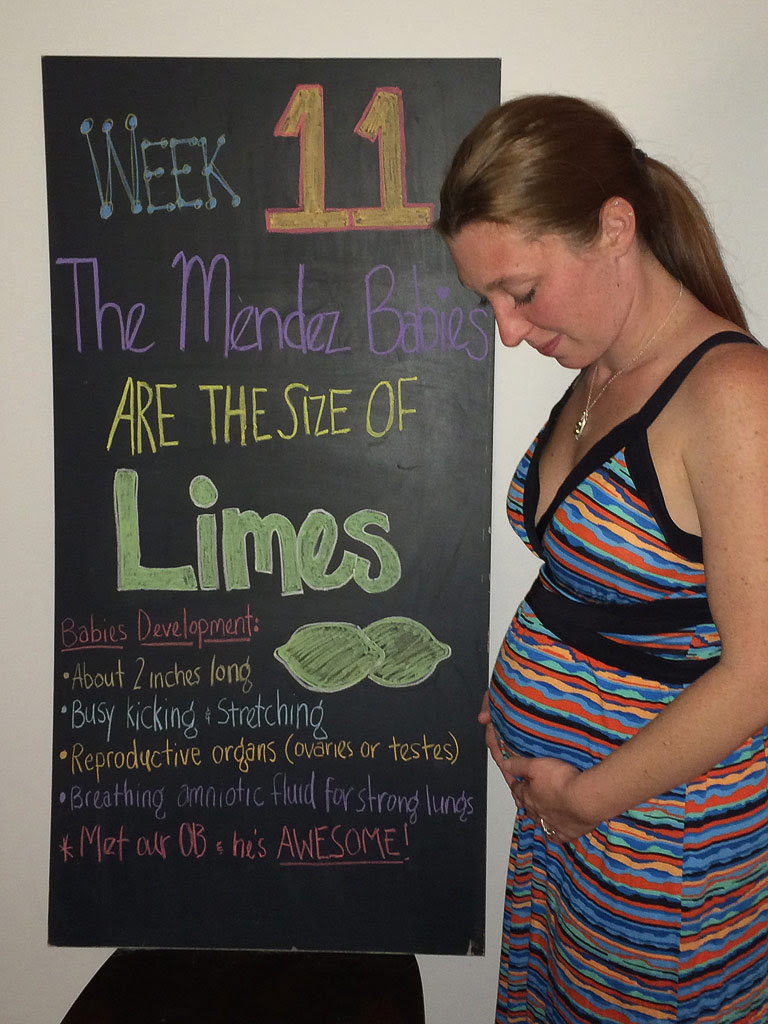 Week 11
The Mendez Babies
ARE THE SIZE OF
Limes
Babies Development:
•About 2 inches long
•Busy kicking & Stretching
•Reproductive organs (ovaries or testes)
•Breathing amniotic fluid for strong lungs
* Met our OB & he's AWESOME!